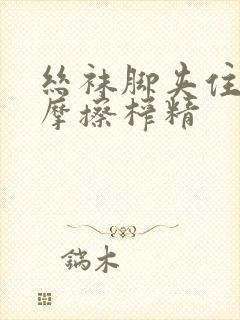 丝袜脚夹住
摩擦榨精
鍧木